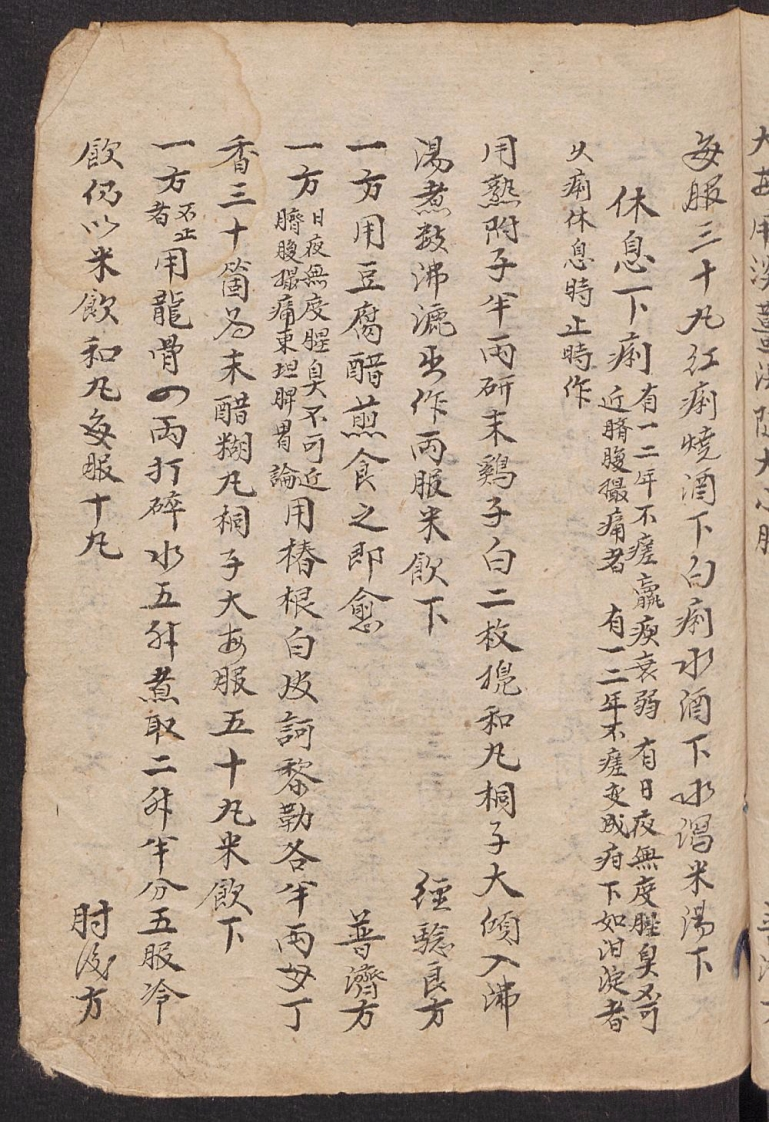 每服三十丸紅痢燒酒下白痢水酒下水瀉米湯下
休息下痢 有一二年不瘥羸瘦衰弱 有日夜無度腥臭不可
近臍腹撮痛者 有一二年不瘥变成疳下如泔淀者
久痢休息時止時作
用熟附子半兩研末鷄子白二枚搅和丸桐子大傾入沸
湯煮数沸漉出作兩服米飲下 經驗良方
一方用豆腐醋煎食之即愈 普濟方
一方 日夜無度腥臭不可近
臍腹撮痛東垣脾胃論 用椿根白皮訶黎勒各半兩母丁
香三十箇為末醋糊丸桐子大每服五十丸米飲下
一方 不止
者 用龍骨四兩打碎水五升煮取二升半分五服冷
飲仍以米飲和丸每服十丸 肘後方